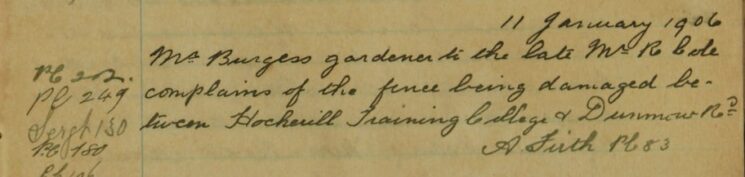 11 January 1906
Mr Burgess gardener to the late Mr R Cole
complains of the fence being damaged be-
tween Hockerill Training College & Dunmow Rd
A Firth PC 83
PC 202.
PC 249
Sergt 130
PC 180